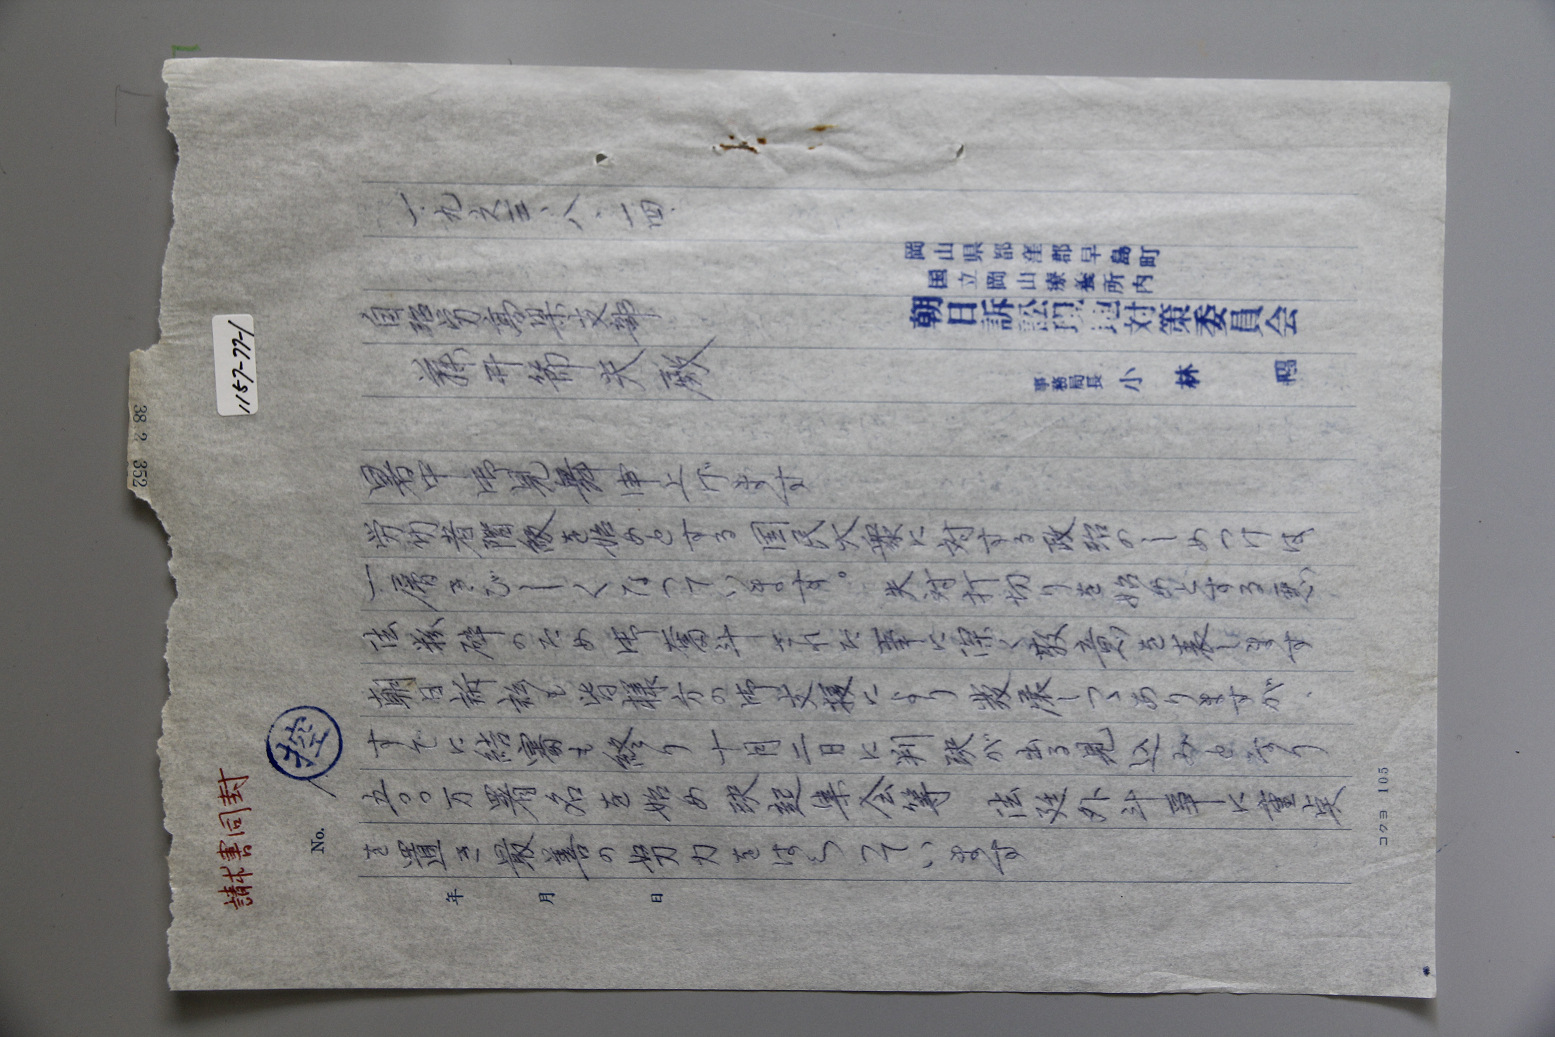 請求書同封
控
No.
1157-77-1
38 2 352
年 月 日
一九六三、八、一四、
岡山県都窪郡早島町
国立岡山療養所内
朝日訴訟中央対策委員会
事務局長 小林 昭
自治労高県支部
藤平節夫殿
暑中御見舞申上げます
労働者階級を始めとする国民大衆に対する政治のしめつけは、
一層きびしくなっています。失対打切りを始めとする悪い
法粉砕のため御奮斗された事に深く敬意を表します
朝日訴訟も皆様方の御支援により発展しつゝありますが、
すでに結審も終り十月二日に判決が出る見込みとなり
五〇〇万署名を始め決起集会等 法廷外斗争に重点
を置き最善の努力をはらっています
コクヨ 105